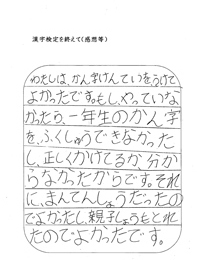 漢字検定を終えて(感想等)
わたしは、かん字けんていをうけて
よかったです。もし、やっていな
かったら、一年生のかん字
を、ふくしゅうできなかった
し、正しくかけてるか分か
らなかったからです。それ
に、まんてんしょうだったの
でよかったし、親子しょうもとれ
たのでよかったです。